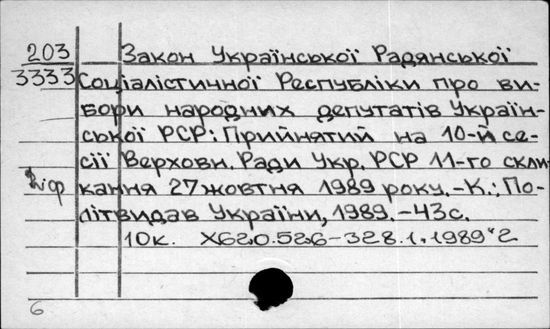 203 Закон Української Радянської
3333 Соціалістичної Республіки про ви-
бори народних депутатів Україн-
ської РСР: Прийнятий на 10-й се-
сії Верховн. Ради Укр. РСР 11-го скли-
кання 27 жовтня 1989 року. - К.: По-
літвидав України, 1989. - 43с.
10к. Х620.526-328.1.1989
6